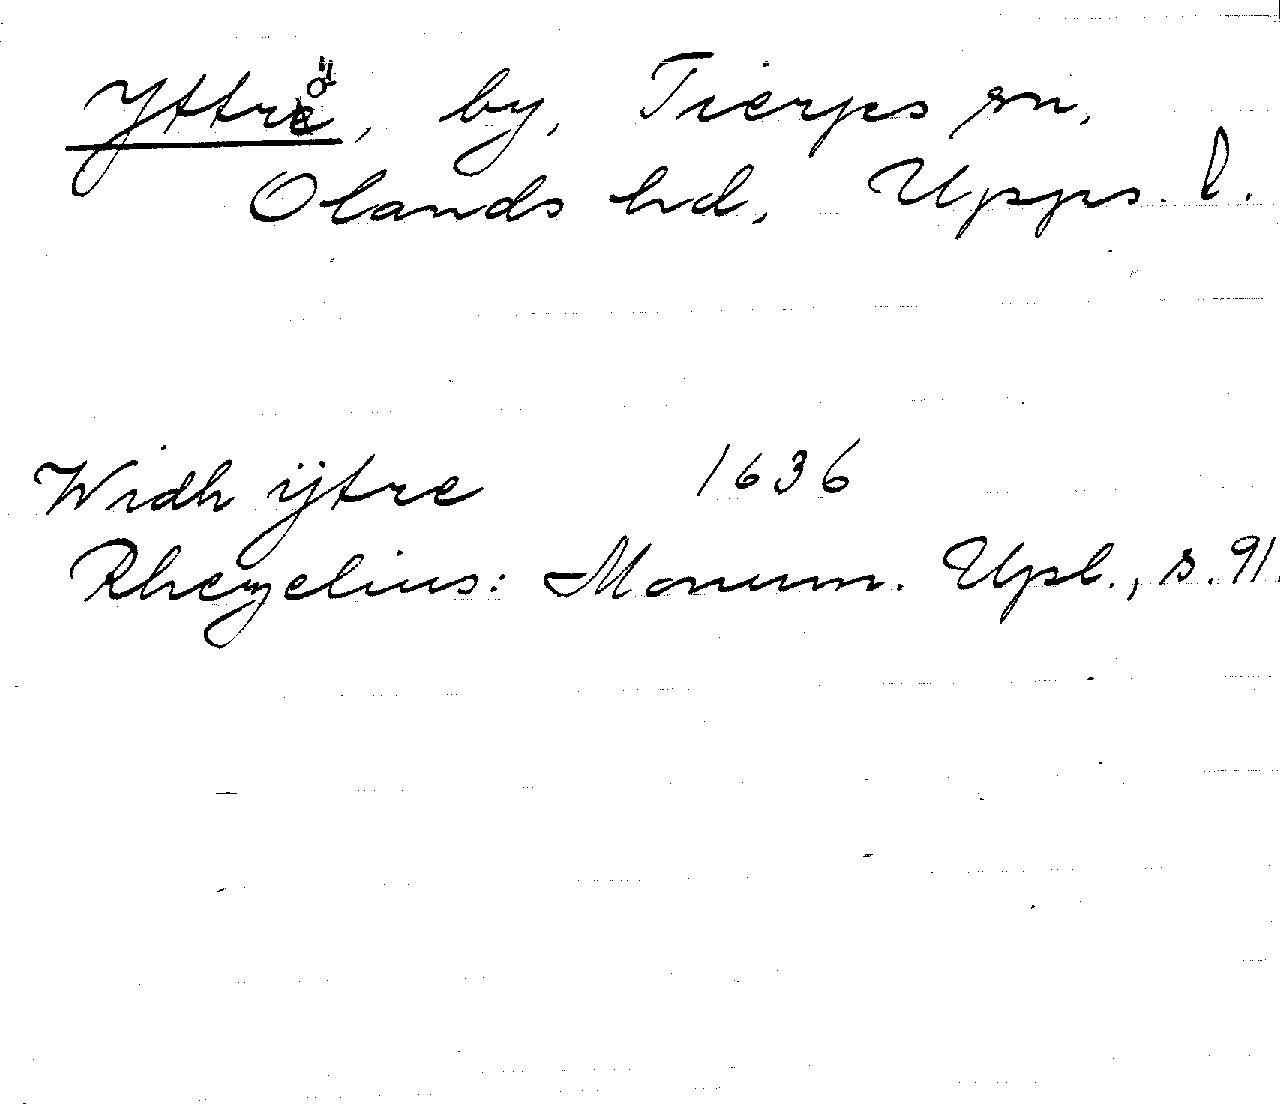 Yttrö, by, Tierps sn,
Olands hd, Upps. l.
Widh ÿtre 1636
Rhezelius: Monum. Upl., s. 91.